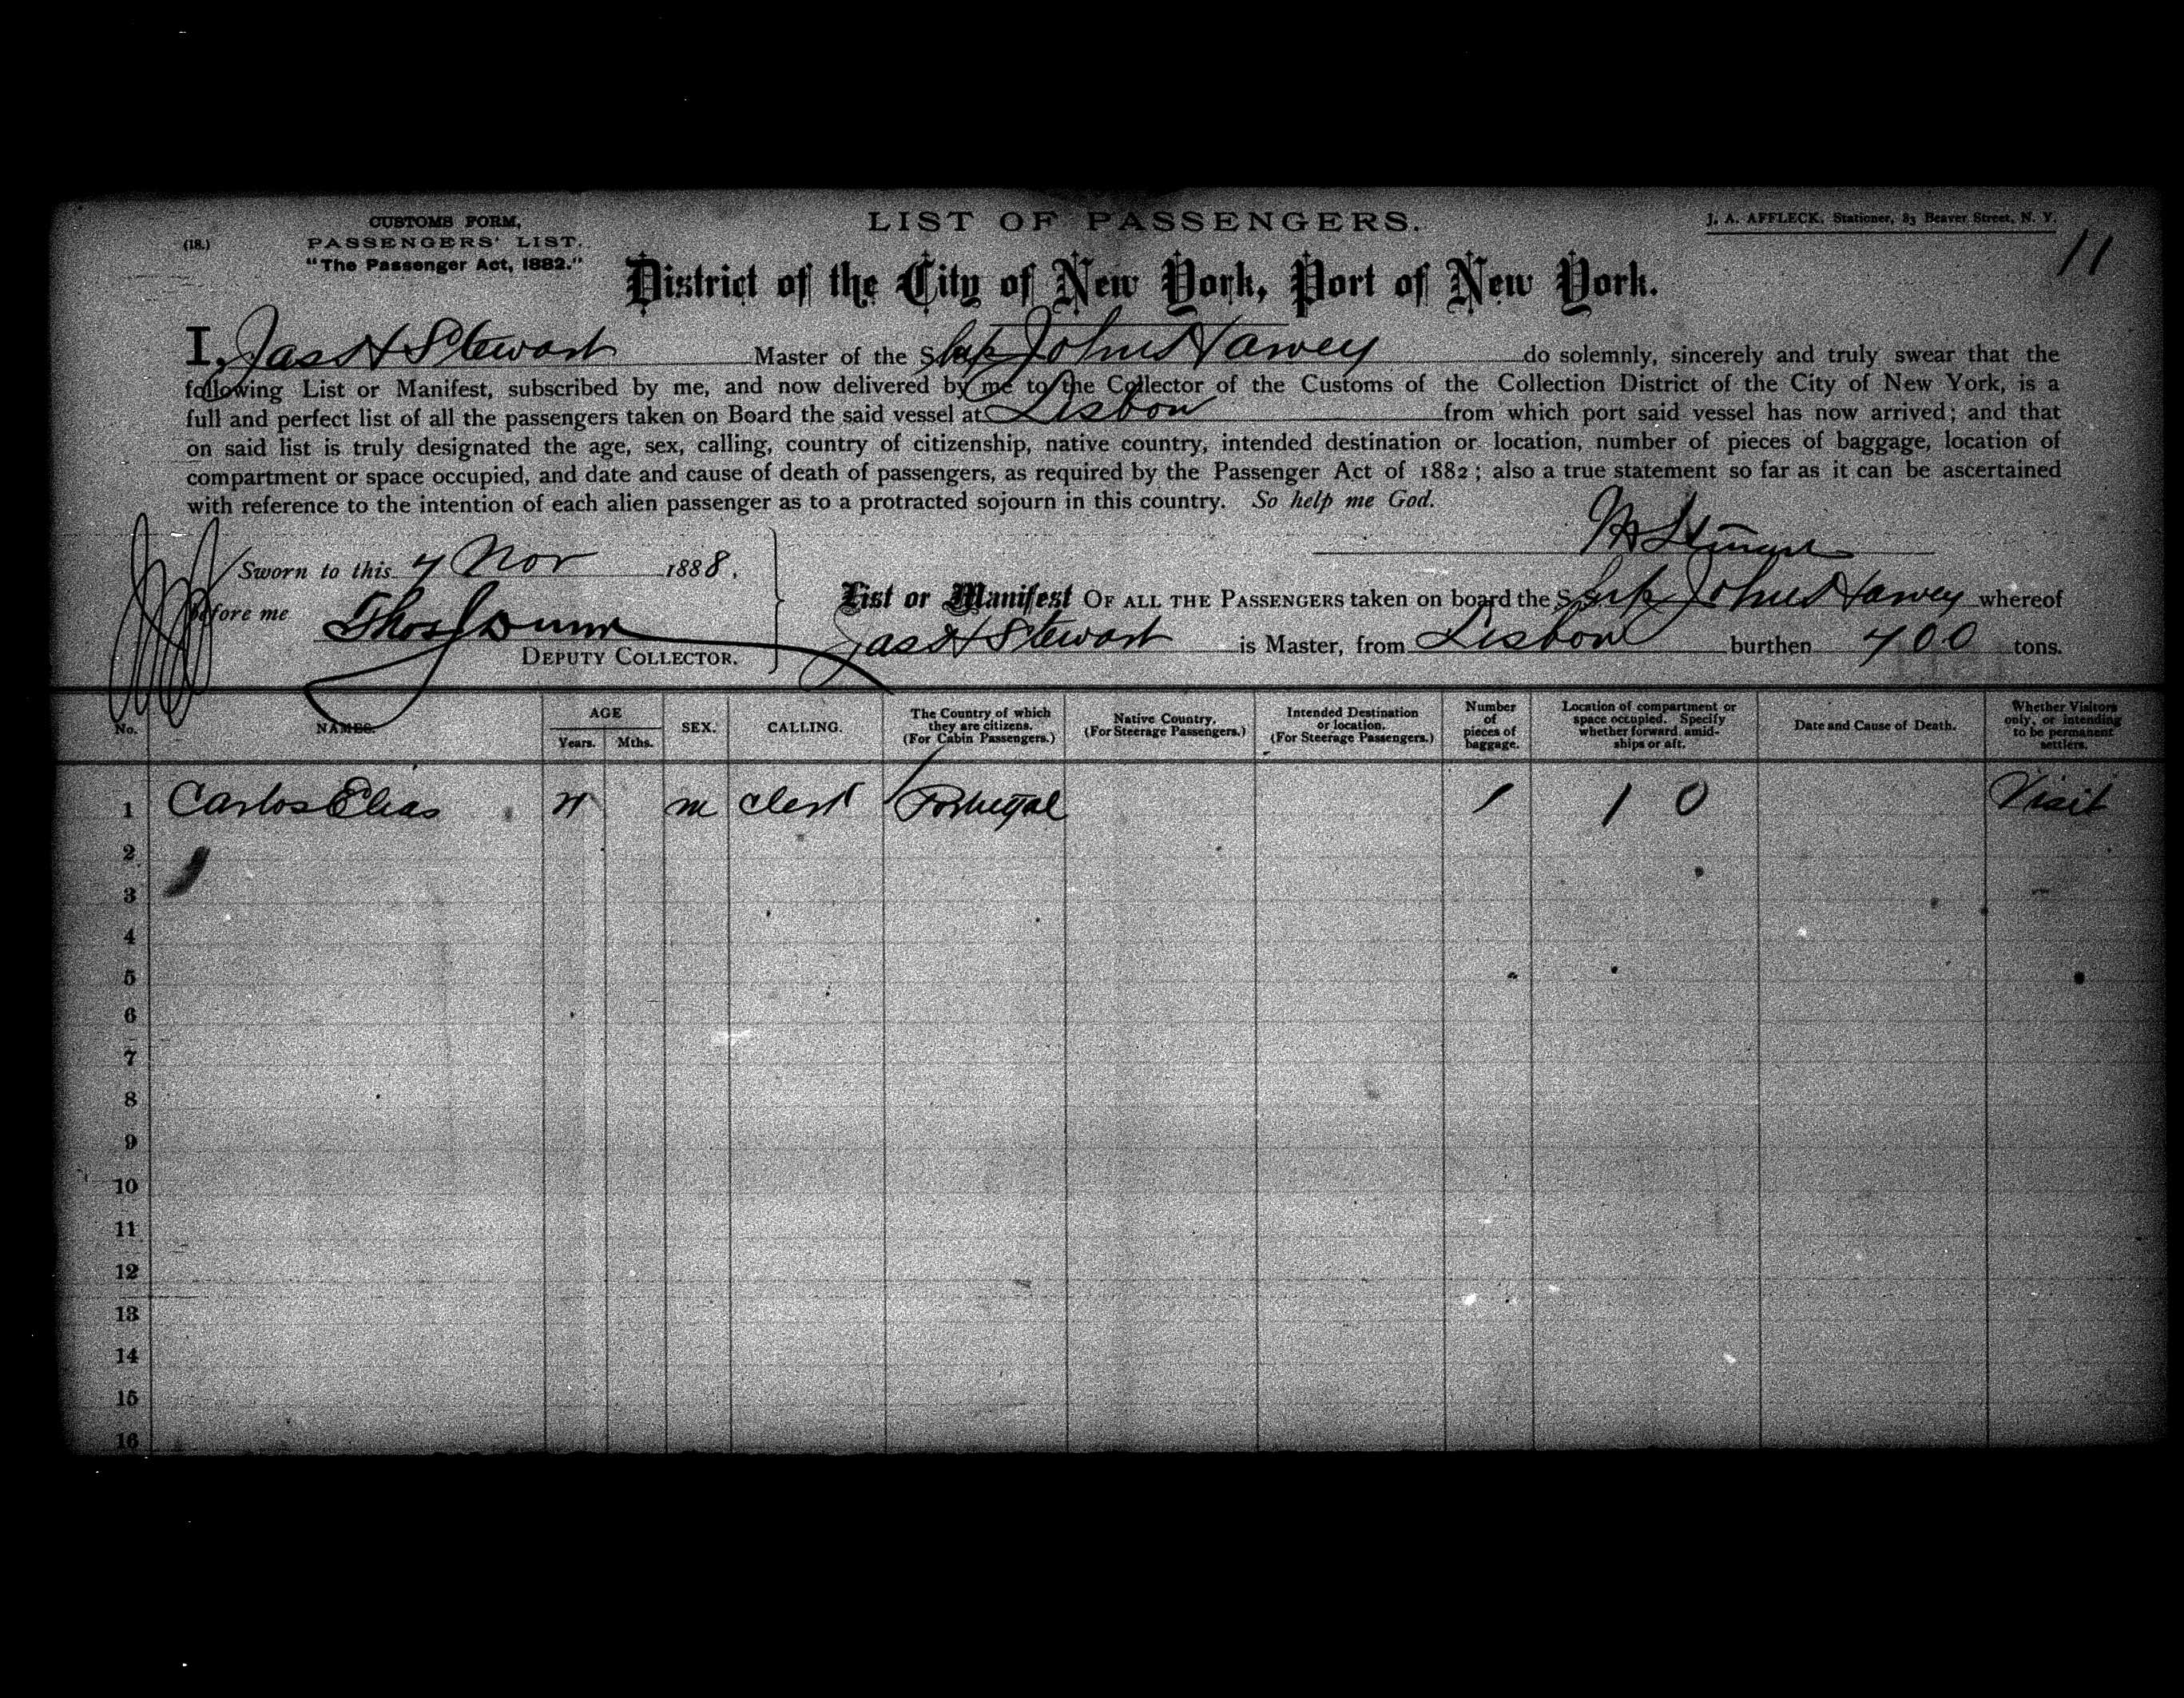 LIST OF PASSENGERS.
(18.)
CUSTOMS FORM,
PASSENGERS' LIST.
"The Passenger Act, 1882."
J. A. AFFLECK, Stationer, 83 Beaver Street, N. Y.
11
District of the City of New York, Port of New York.
I, Jas H Stewart Master of the Ship John Harvey do solemnly, sincerely and truly swear that the
following List or Manifest, subscribed by me, and now delivered by me to the Collector of the Customs of the Collection District of the City of New York, is a
full and perfect list of all the passengers taken on Board the said vessel at Lisbon from which port said vessel has now arrived; and that
on said list is truly designated the age, sex, calling, country of citizenship, native country, intended destination or location, number of pieces of baggage, location of
compartment or space occupied, and date and cause of death of passengers, as required by the Passenger Act of 1882; also a true statement so far as it can be ascertained
with reference to the intention of each alien passenger as to a protracted sojourn in this country. So help me God.
Sworn to this 7 Nov 1888.
Before me Thos J Dunn
DEPUTY COLLECTOR.
List or Manifest OF ALL THE PASSENGERS taken on board the Ship John Harvey whereof
Jas H Stewart is Master, from Lisbon burthen 700 tons.
No. NAMES. AGE Years. Mths. SEX. CALLING. The Country of which they are citizens. (For Cabin Passengers.) Native Country. (For Steerage Passengers.) Intended Destination or location. (For Steerage Passengers.) Number of pieces of baggage. Location of compartment or space occupied. Specify whether forward, amidships or aft. Date and Cause of Death. Whether Visitors only, or intending to be permanent settlers.
1 Carlos Elias m clerk Portugal 1 1 0 Visit
2
3
4
5
6
7
8
9
10
11
12
13
14
15
16